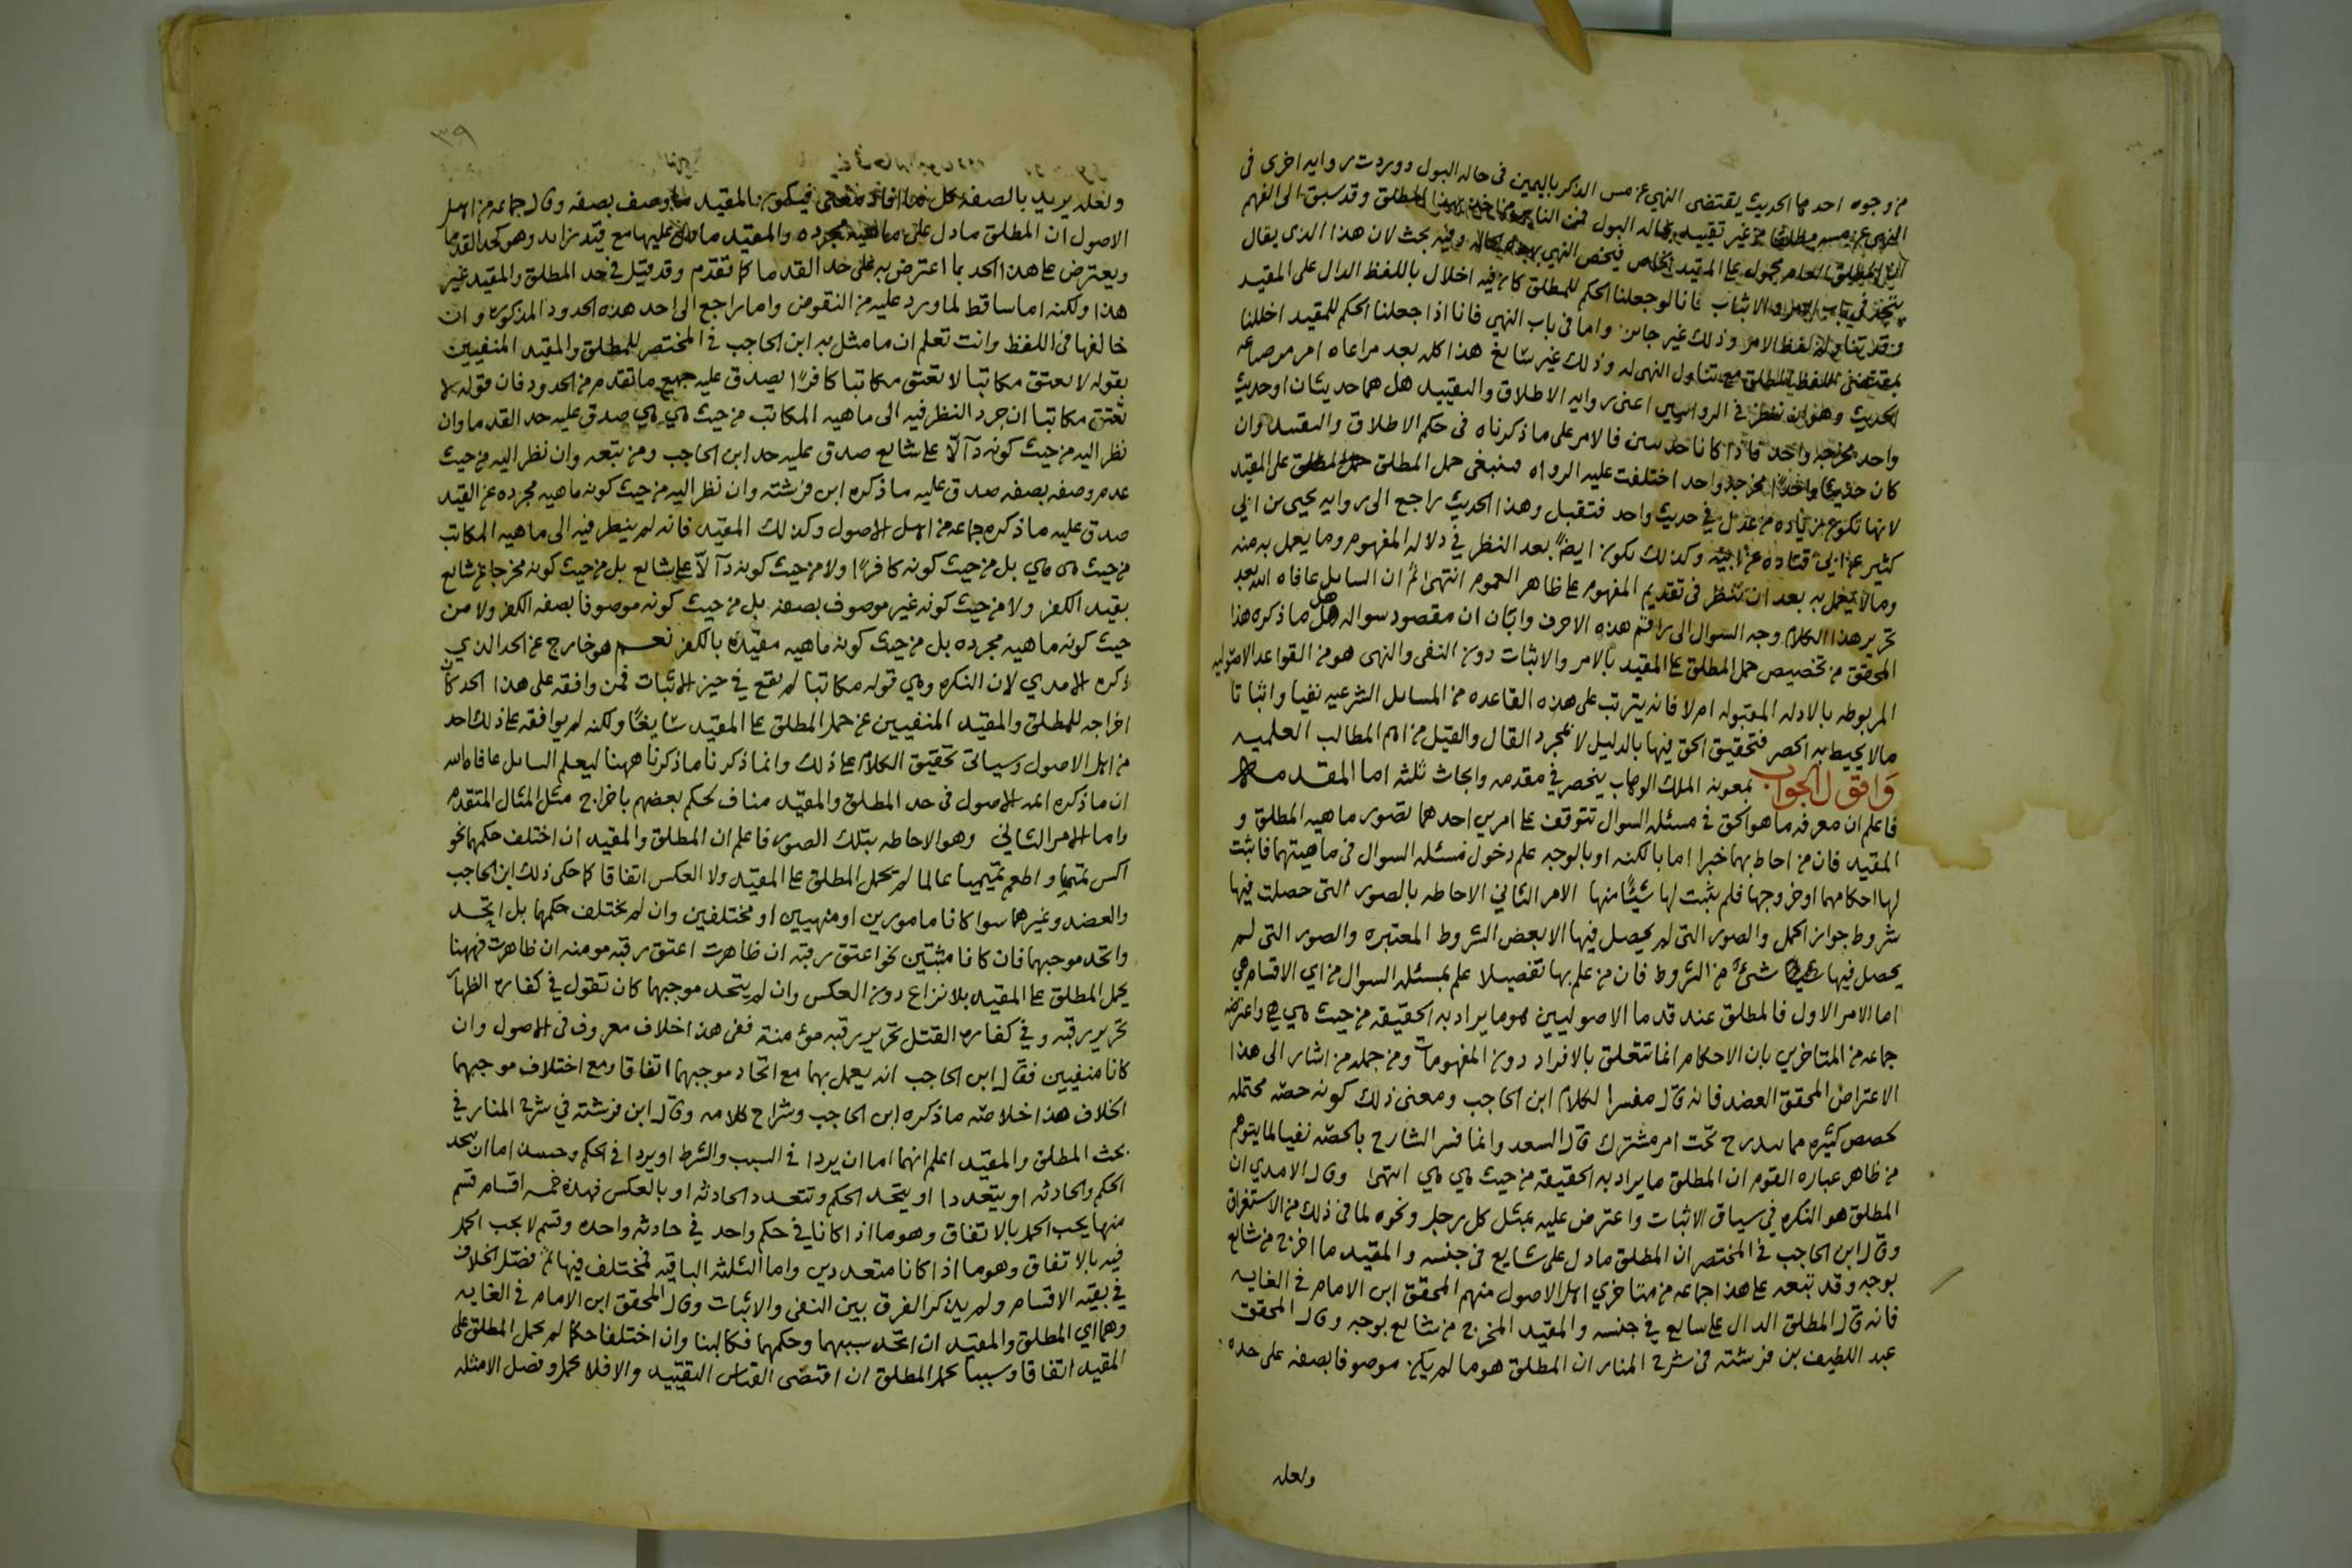 من وجوه احدها الحديث يقتضى النهي عن مس الذكر باليمين فى حاله البول ووردت روايه اخرى فى
النهي عن مسه مطلقا من غير تقييد بحاله البول فمن الناس من اخذ بهذا المطلق وقد سبق الى الفهم
ان المطلق العام محمول على المقيد الخاص فيختص النهي بهذه الحاله وفيه بحث لان هذا الذى يقال
يتجه فى باب الامر والاثبات فانا لو جعلنا الحكم للمطلق كان فيه اخلال باللفظ الدال على المقيد
وقد تناوله لفظ الامر وذلك غير جائز واما فى باب النهي فانا اذا جعلنا الحكم للمقيد اخللنا
بمقتضى اللفظ المطلق مع تناول النهى له وذلك غير سائغ هذا كله بعد مراعاه امر من صناعه
الحديث وهو ان ننظر فى الروايتين اعنى روايه الاطلاق والتقييد هل هما حديثان او حديث
واحد مخرجه واحد فاذا كانا حديثين فالامر على ما ذكرناه فى حكم الاطلاق والتقييد وان
كان حديثا واحدًا مخرجه واحد اختلفت عليه الرواه فينبغى حمل المطلق على المقيد
لانها تكون زياده من عدل في حديث واحد فتقبل وهذا الحديث راجع الى روايه يحيى بن ابي
كثير عن ابي قتاده عن ابيه وكذلك يكون ايضًا بعد النظر في دلاله المفهوم وما يعمل به منه
وما لا يعمل به بعد ان ننظر فى تقديم المفهوم على ظاهر العموم انتهى ثم ان السايل عافاه الله بعد
تحرير هذا الكلام وجه السوال الى راقم هذه الاحرف وابان ان مقصود سواله هل ما ذكره هذا
المحقق من تخصيص حمل المطلق على المقيد بالامر والاثبات دون النفى والنهى هو من القواعد الاصوليه
المربوطه بالادله المقبوله ام لا فانه يترتب على هذه القاعده من المسايل الشرعيه نفيا واثباتا
مالا يحيط به الحصر فتحقيق الحق فيها بالدليل لا بمجرد القال والقيل من اهم المطالب العلميه
وَاقول الجواب بمعونه الملك الوهاب ينحصر في مقدمه وابحاث ثلثه اما المقدمه
فاعلم ان معرفه ما هو الحق فى مسئله السوال تتوقف على امرين احدهما تصور ماهيه المطلق و
المقيد فان من احاط بهما خبرا اما بالكنه او بالوجه علم دخول مسئله السوال فى ماهيتهما فاثبت
لها احكامهما او خروجها فلم يثبت لها شيئًا منها الامر الثاني الاحاطه بالصور التى حصلت فيها
شروط جواز الحمل والصور التى لم يحصل فيها الا بعض الشروط المعتبره والصور التى لم
يحصل فيها شئ من الشروط فان من علم بها تفصيلا علم بمسئله السوال من اي الاقسام هي
اما الامر الاول فالمطلق عند قدما الاصوليين هو ما يراد به الحقيقه من حيث هي هي واعترض
جماعه من المتاخرين بان الاحكام انما تتعلق بالافراد دون المفهومات ومن جمله من اشار الى هذا
الاعتراض المحقق العضد فانه قال مفسرا لكلام ابن الحاجب ومعنى ذلك كونه حصّه محتمله
لحصص كثيره مما يندرج تحت امر مشترك قال السعد وانما فسر الشارح بالحصّه نفيا لما يتوهم
من ظاهر عباره القوم ان المطلق ما يراد به الحقيقه من حيث هي هي انتهى وقال الامدي ان
المطلق هو النكره في سياق الاثبات واعترض عليه بمثل كل رجل ونحوه لما فى ذلك من الاستغراق
وقال ابن الحاجب فى المختصر ان المطلق ما دل على شايع فى جنسه والمقيد ما اخرج من شايع
بوجه وقد تبعه على هذا جماعه من متاخري اهل الاصول منهم المحقق ابن الامام فى الغايه
فانه قال المطلق الدال على شايع في جنسه والمقيد المخرج من شايع بوجه وقال المحقق
عبد اللطيف بن فرشته فى شرح المنار ان المطلق هو ما لم يكن موصوفا بصفه على حده
ولعله
ولعله يريد بالصفه كل ما افاد معنى فيكون المقيد ما وصف بصفه وقال جماعه من اهل
الاصول ان المطلق ما دل على ماهيه مجرده والمقيد ما دل عليها مع قيد زايد وهو كحد القدما
ويعترض على هذا الحد بما اعترض به على حد القدما كما تقدم وقد قيل في حد المطلق والمقيد غير
هذا ولكنه اما ساقط لما ورد عليه من النقوض واما راجع الى احد هذه الحدود المذكوره وان
خالفها فى اللفظ وانت تعلم ان ما مثل به ابن الحاجب فى المختصر للمطلق والمقيد المنفيين
بقوله لا يعتق مكاتبا لا تعتق مكاتبا كافرًا يصدق عليه جميع ما تقدم من الحدود فان قوله لا
تعتق مكاتبا ان جرد النظر فيه الى ماهيه المكاتب من حيث هي هي صدق عليه حد القدما وان
نظر اليه من حيث كونه دآلّا على شايع صدق عليه حد ابن الحاجب ومن تبعه وان نظر اليه من حيث
عدم وصفه بصفه صدق عليه ما ذكره ابن فرشته وان نظر اليه من حيث كونه ماهيه مجرده عن القيد
صدق عليه ما ذكره جماعه من اهل الاصول وكذلك المقيد فانه لم ينظر فيه الى ماهيه المكاتب
من حيث هى هي بل من حيث كونه كافرًا ولا من حيث كونه دآلّا على شايع بل من حيث كونه مخرجا عن شايع
بقيد الكفر ولا من حيث كونه غير موصوف بصفه بل من حيث كونه موصوفا بصفه الكفر ولا من
حيث كونه ماهيه مجرده بل من حيث كونه ماهيه مقيده بالكفر نعم هو خارج عن الحد الذي
ذكره الامدي لان النكره وهي قوله مكاتبا لم يقع في حيز الاثبات فمن وافقه على هذا الحد كان
اخراجه للمطلق والمقيد المنفيين عن حمل المطلق على المقيد سايغًا ولكنه لم يوافقه على ذلك احد
من اهل الاصول وسياتى تحقيق الكلام على ذلك وانما ذكرنا ما ذكرنا ههنا ليعلم السايل عافاه الله
ان ما ذكره ائمه الاصول فى حد المطلق والمقيد مناف لحكم بعضهم باخراج مثل المثال المتقدم
واما الامر الثاني وهو الاحاطه بتلك الصور فاعلم ان المطلق والمقيد ان اختلف حكمهما نحو
اكس تميميا واطعم تميميا عالما لم يحمل المطلق على المقيد ولا العكس اتفاقا كما حكى ذلك ابن الحاجب
والعضد وغيرهما سوا كانا مامورين او منهيين او مختلفين وان لم يختلف حكمهما بل اتحد
واتحد موجبهما فان كانا مثبتين نحو اعتق رقبه ان ظاهرت اعتق رقبه مومنه ان ظاهرت فههنا
يحمل المطلق على المقيد بلا نزاع دون العكس وان لم يتحد موجبهما كان تقول في كفاره الظهار
تحرير رقبه وفي كفاره القتل تحرير رقبه مؤمنة ففى هذا خلاف معروف فى الاصول وان
كانا منفيين فقال ابن الحاجب انه يعمل بهما مع اتحاد موجبهما اتفاقا ومع اختلاف موجبهما
الخلاف هذا خلاصه ما ذكره ابن الحاجب وشراح كلامه وقال ابن فرشته في شرح المنار في
بحث المطلق والمقيد اعلم انهما اما ان يردا فى السبب والشرط او يردا فى الحكم وحينئذ اما ان يتحد
الحكم والحادثه او يتعددا او يتحد الحكم وتتعدد الحادثه او بالعكس فهذه خمسه اقسام قسم
منها يجب الحمل بالاتفاق وهو ما اذا كانا في حكم واحد في حادثه واحده وقسم لا يجب الحمل
فيه بالاتفاق وهو ما اذا كانا متعددين واما الثلثه الباقيه فمختلف فيها ثم فصّل الخلاف
في بقيه الاقسام ولم يذكر الفرق بين النفى والاثبات وقال المحقق ابن الامام فى الغايه
وهما اي المطلق والمقيد ان اتحد سببهما وحكمهما فكالبنا وان اختلفا حكما لم يحمل المطلق على
المقيد اتفاقا وسببا يحمل المطلق ان اقتضى القياس التقييد والا فلا يحمل وفصل الامثله